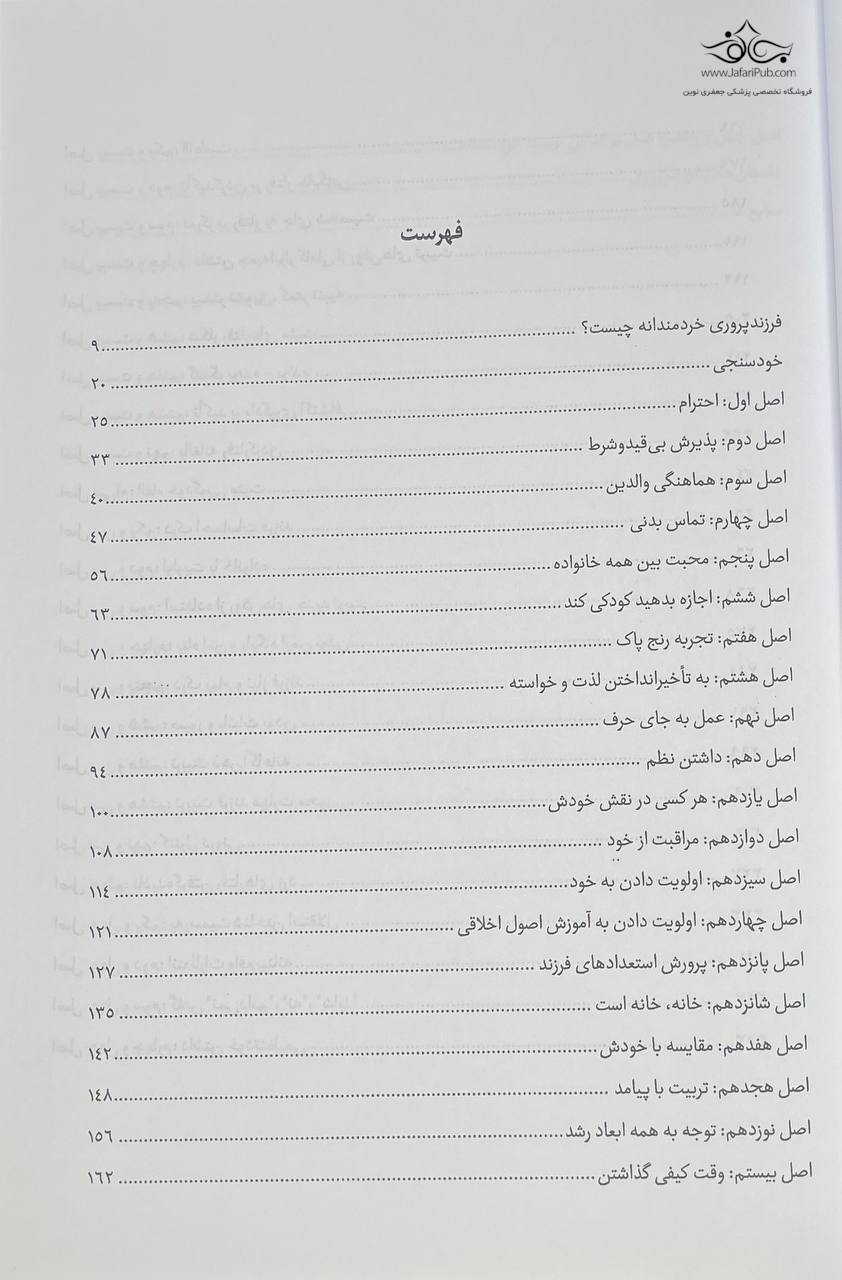 www.JafariPub.com
فروشگاه تخصصی پزشکی جعفری نوین
فهرست
فرزندپروری خردمندانه چیست؟ ........ ۹
خودسنجی ........ ۲۰
اصل اول: احترام ........ ۲۵
اصل دوم: پذیرش بی‌قیدوشرط ........ ۳۳
اصل سوم: هماهنگی والدین ........ ٤۰
اصل چهارم: تماس بدنی ........ ٤۷
اصل پنجم: محبت بین همه خانواده ........ ٥٦
اصل ششم: اجازه بدهید کودکی کند ........ ٦۳
اصل هفتم: تجربه رنج پاک ........ ۷۱
اصل هشتم: به تأخیرانداختن لذت و خواسته ........ ۷۸
اصل نهم: عمل به جای حرف ........ ۸۷
اصل دهم: داشتن نظم ........ ۹٤
اصل یازدهم: هر کسی در نقش خودش ........ ۱۰۰
اصل دوازدهم: مراقبت از خود ........ ۱۰۸
اصل سیزدهم: اولویت دادن به خود ........ ۱۱٤
اصل چهاردهم: اولویت دادن به آموزش اصول اخلاقی ........ ۱۲۱
اصل پانزدهم: پرورش استعدادهای فرزند ........ ۱۲۷
اصل شانزدهم: خانه، خانه است ........ ۱۳٥
اصل هفدهم: مقایسه با خودش ........ ۱٤۲
اصل هجدهم: تربیت با پیامد ........ ۱٤۸
اصل نوزدهم: توجه به همه ابعاد رشد ........ ۱٥٦
اصل بیستم: وقت کیفی گذاشتن ........ ۱٦۲